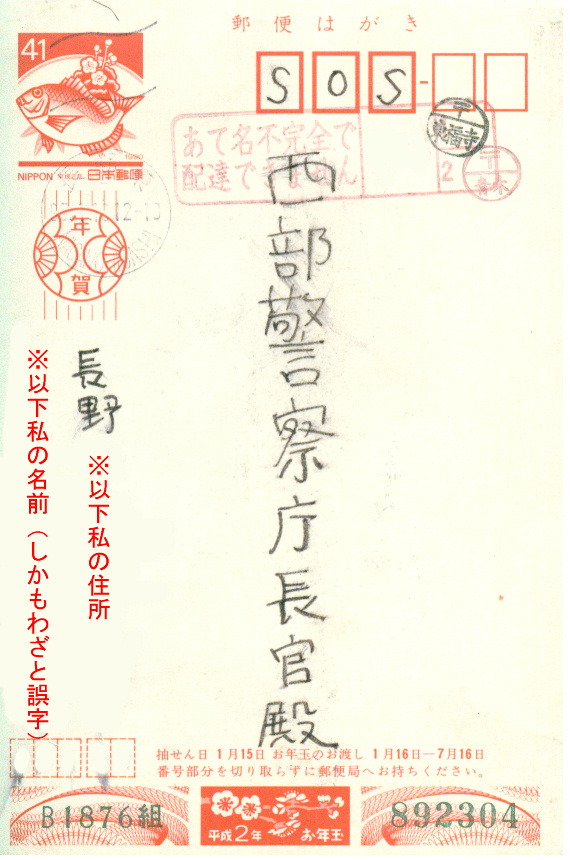 郵便はがき
41
1990
NIPPON 平成2年 日本郵便
SOS-
あて名不完全で
配達できません
12-19
年
賀
西部警察庁長官殿
長野
※以下私の住所
※以下私の名前（しかもわざと誤字）
抽せん日 1月15日 お年玉のお渡し 1月16日—7月16日
番号部分を切り取らずに郵便局へお持ちください。
B1876組
平成2年 お年玉
892304